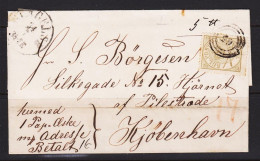 5 ℔
J. S. Börgesen
Silkegade No 15. Hjörnet
af Pilestræde
Kjöbenhavn
hermed
1 Pap. Æske
mp Adresse
Betalt